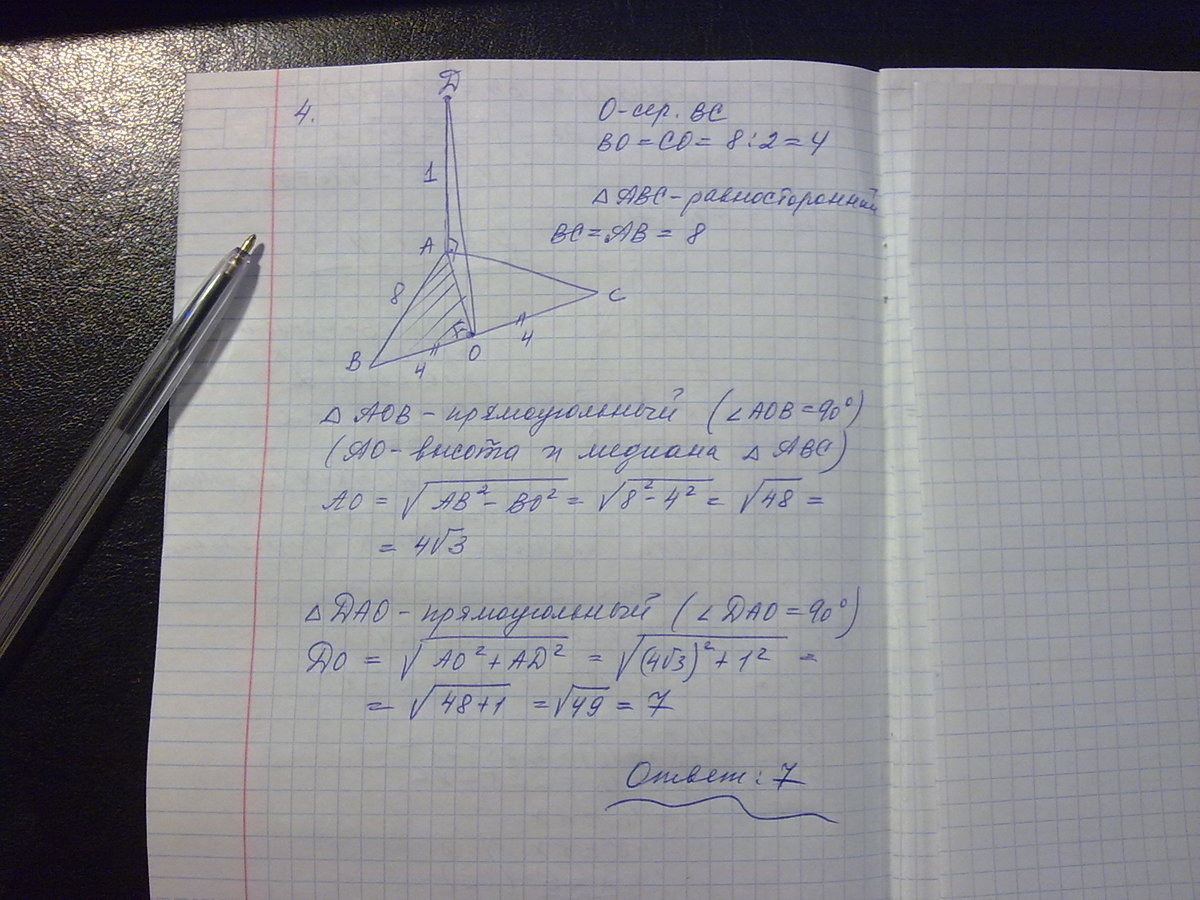 4.
D
1
A
8
B
4
O
4
C
O-сер. BC
BO = CO = 8:2 = 4
△ ABC - равносторонний
BC = AB = 8
△ AOB - прямоугольный (∠AOB = 90°)
(AO - высота и медиана △ ABC)
AO = √(AB² - BO²) = √(8² - 4²) = √48 =
= 4√3
△ DAO - прямоугольный (∠DAO = 90°)
DO = √(AO² + AD²) = √((4√3)² + 1²) =
= √(48+1) = √49 = 7
Ответ: 7